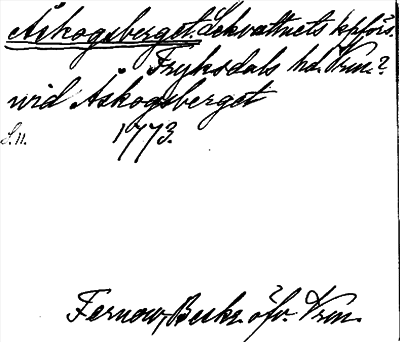 Åskogsberget. Lekvattnets kpförs.
Fryksdals hd. Vrm.?
wid Åskogsberget
S. 11. 1773.
Fernow, Beskr. öfv. Vrm.